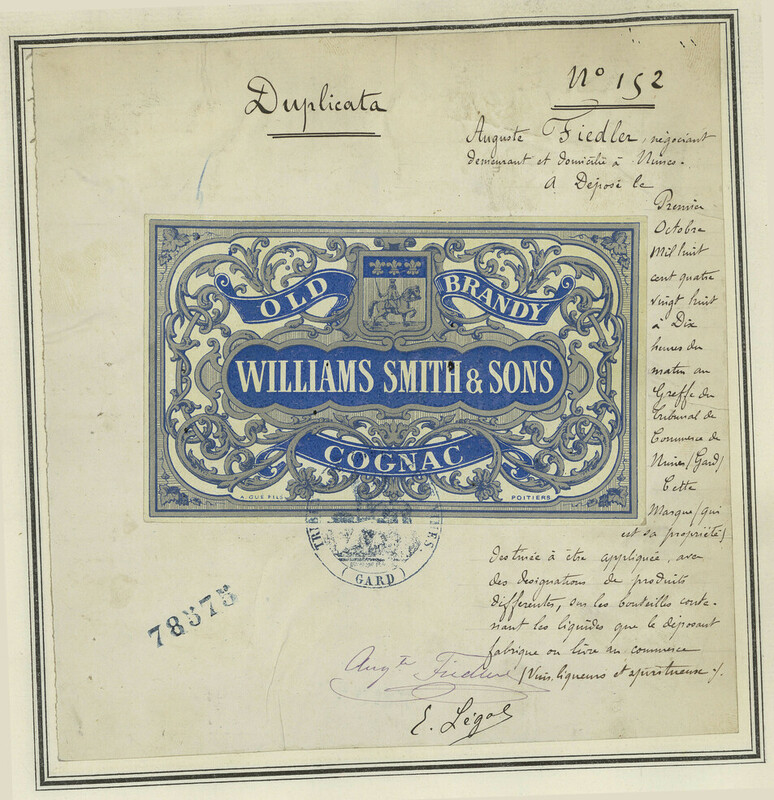 Duplicata
Nº 152
Auguste Fiedler, négociant
demeurant et domicilié à Nimes.
A Déposé le
Premier
Octobre
Mil huit
cent quatre
vingt huit
à Dix
heures du
matin au
Greffe du
Tribunal de
Commerce de
Nimes (Gard)
Cette
Marque (qui
est sa propriété)
destinée à être appliquée, avec
des designations de produits
differentes, sur les bouteilles conte-
nant les liquides que le déposant
fabrique ou livre au commerce
(Vins, liqueurs et spiritueux).
OLD BRANDY
WILLIAMS SMITH & SONS
COGNAC
A. GUÉ FILS
POITIERS
(GARD)
78575
Augte Fiedler
E. Légal